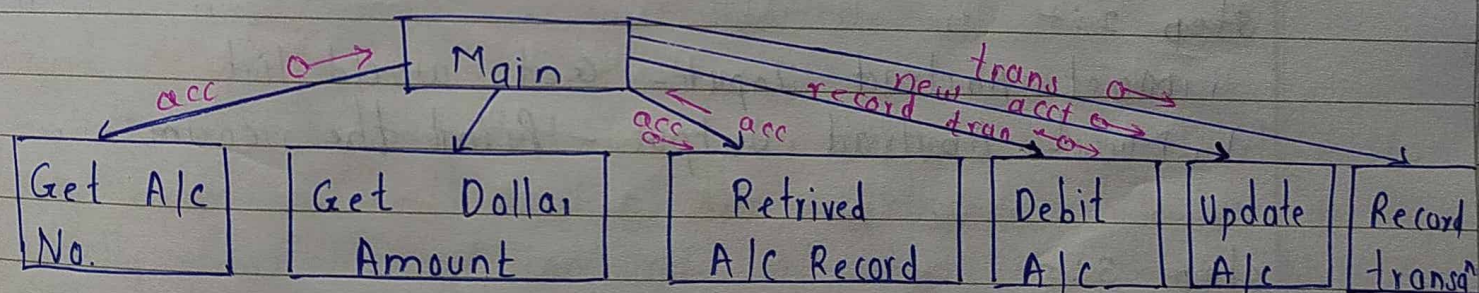 Main
acc
trans
new acct
record tran
acc
acc
Get A/c
No.
Get Dollar
Amount
Retrived
A/C Record
Debit
A/C
Update
A/C
Record
transaⁿ